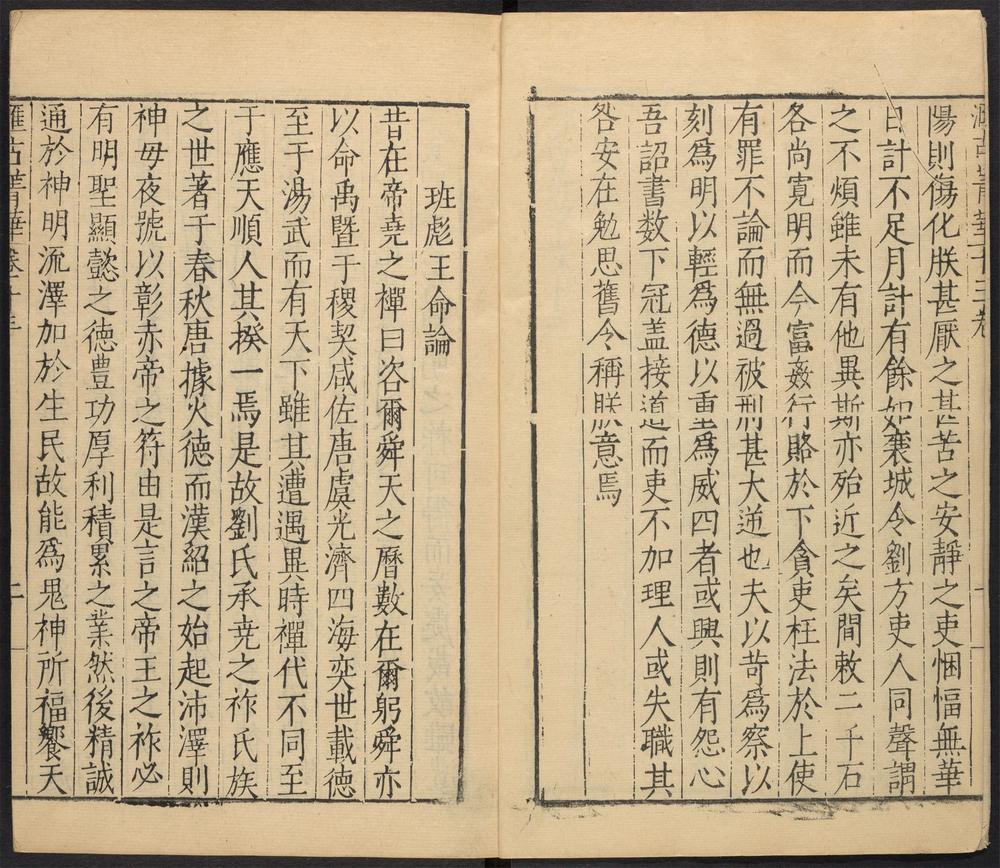 陽則傷化朕甚厭之甚苦之安靜之吏悃愊無華
日計不足月計有餘如襄城令劉方吏人同聲謂
之不煩雖未有他異斯亦殆近之矣間敕二千石
各尚寛明而今富姦行賂於下貪吏枉法於上使
有罪不論而無過被刑甚大逆也夫以苛爲察以
刻爲明以輕爲德以重爲威四者或興則有怨心
吾詔書数下冠盖接道而吏不加理人或失職其
咎安在勉思舊令稱朕意焉
班彪王命論
昔在帝堯之禪曰咨爾舜天之曆數在爾躬舜亦
以命禹暨于稷契咸佐唐虞光濟四海奕世載德
至于湯武而有天下雖其遭遇異時禪代不同至
于應天順人其揆一焉是故劉氏承尭之祚氏族
之世著于春秋唐據火德而漢紹之始起沛澤則
神母夜號以彰赤帝之符由是言之帝王之祚必
有明聖顯懿之德豊功厚利積累之業然後精誠
通於神明流澤加於生民故能爲鬼神所福饗天